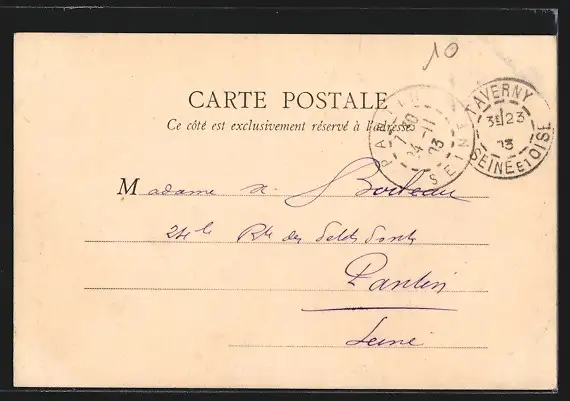 10
CARTE POSTALE
Ce côté est exclusivement réservé à l'adresse
TAVERNY
3E 23
13
SEINE ET OISE
7 30
24 - 11
03
SEINE
Madame
24 Rte des
Pantin
Seine